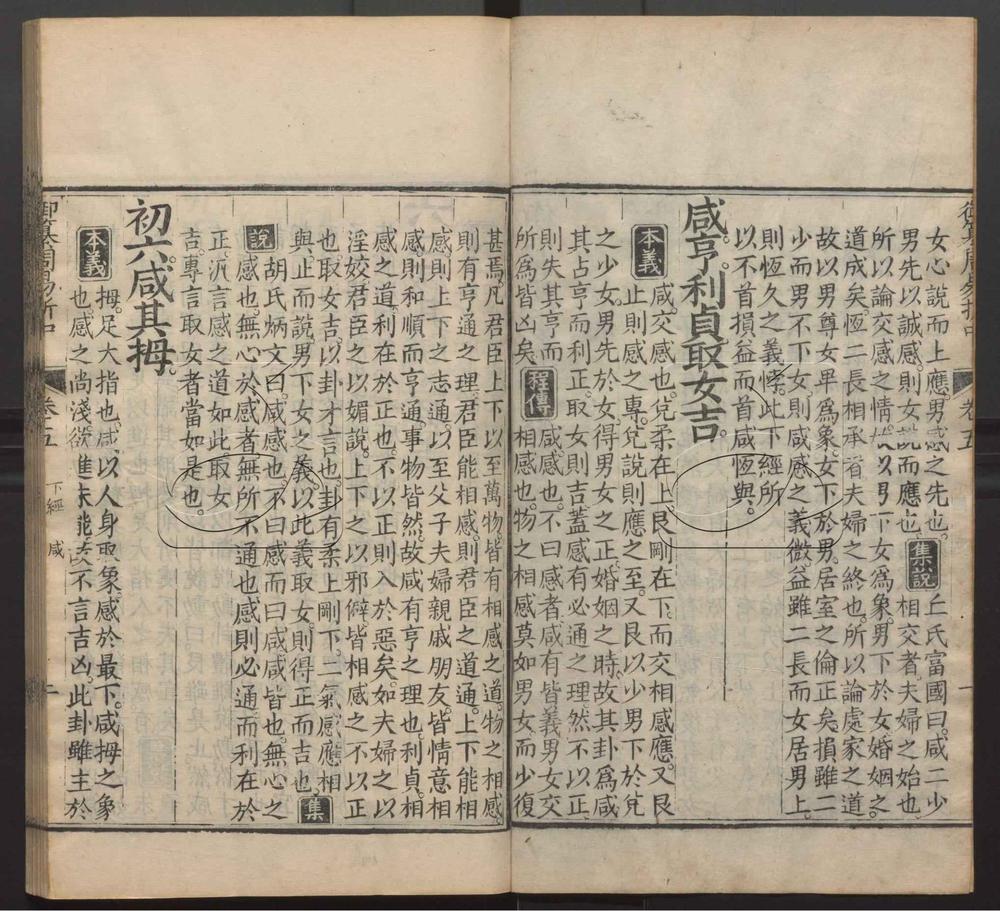 女心說而上應。男感之先也。
男先以誠感。則女說而應也。集說 丘氏富國曰。咸二少
相交者。夫婦之始也。
所以論交感之情。故以男下女爲象。男下於女。婚姻之
道成矣。恆二長相承者。夫婦之終也。所以論處家之道。
故以男尊女卑爲象。女下於男。居室之倫正矣。損雖二
少。而男不下女。則咸感之義微。益雖二長。而女居男上。
則恆久之義悖。此下經所
以不首損益而首咸恆與。
咸。亨。利貞。取女吉。
本義 咸。交感也。兌柔在上。艮剛在下。而交相感應。又艮
止則感之專。兌說則應之至。又艮以少男下於兌
之少女。男先於女。得男女之正。婚姻之時。故其卦爲咸。
其占亨而利正。取女則吉。蓋感有必通之理。然不以正。
則失其亨。而
所爲皆凶矣。程傳 咸。感也。不曰感者。咸有皆義。男女交
相感也。物之相感。莫如男女。而少復
甚焉。凡君臣上下。以至萬物。皆有相感之道。物之相感。
則有亨通之理。君臣能相感。則君臣之道通。上下能相
感。則上下之志通。以至父子夫婦親戚朋友。皆情意相
感。則和順而亨通。事物皆然。故咸有亨之理也。利貞。相
感之道。利在於正也。不以正。則入於惡矣。如夫婦之以
淫姣。君臣之以媚說。上下之以邪僻。皆相感之不以正
也。取女吉。以卦才言也。卦有柔上剛下。二氣感應。相
與。止而說。男下女之義。以此義取女。則得正而吉也。集
說 胡氏炳文曰。咸。感也。不曰感而曰咸。咸。皆也。無心之
感也。無心於感者。無所不通也。感則必通。而利在於
正。汎言感之道如此。取女
吉。專言取女者當如是也。
初六。咸其拇。
本義 拇。足大指也。咸以人身取象。感於最下。咸拇之象
也。感之尚淺。欲進未能。故不言吉凶。此卦雖主於
御纂周易折中 卷五 下經 咸 二